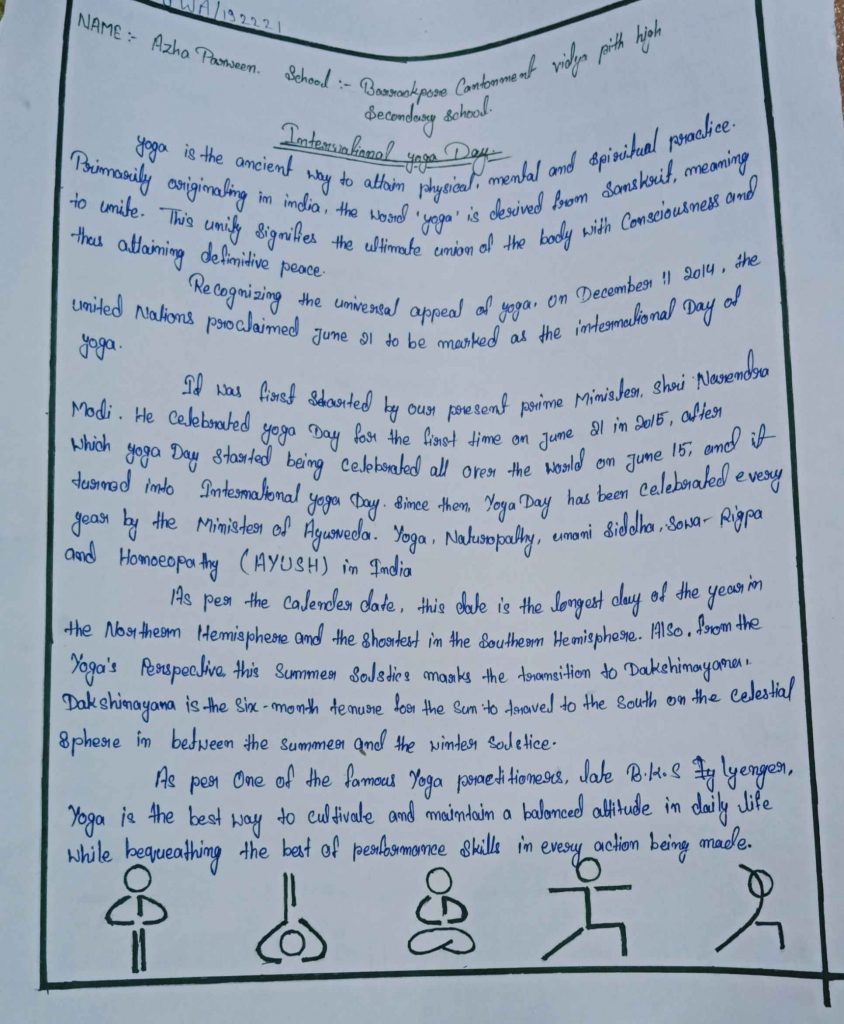 WA/192221
NAME:- Azha Parween. School:- Barrackpore Cantonment vidya pith high
Secondary School.
International yoga Day.
yoga is the ancient way to attain physical, mental and spiritual practice.
Primarily originating in india, the word 'yoga' is derived from Sanskrit, meaning
to unite. This unify signifies the ultimate union of the body with Consciousness and
thus attaining definitive peace.
Recognizing the universal appeal of yoga, on December 11 2014, the
united Nations proclaimed June 21 to be marked as the international Day of
yoga.
It was first started by our present prime Minister, Shri Narendra
Modi. He celebrated yoga Day for the first time on June 21 in 2015, after
which yoga Day started being celebrated all over the world on June 15, and it
turned into International yoga Day. Since then, Yoga Day has been celebrated every
year by the Minister of Ayurveda. Yoga, Naturopathy, unani Siddha, Sowa-Rigpa
and Homoeopathy (AYUSH) in India
As per the calender date, this date is the longest day of the year in
the Northern Hemisphere and the shortest in the Southern Hemisphere. Also, from the
Yoga's Perspective, this Summer Solstics marks the transition to Dakshinayana.
Dakshinayana is the six-month tenure for the Sun to travel to the South on the celestial
Sphere in between the summer and the winter solstice.
As per One of the famous Yoga practitioners, late B.K.S Iyenger,
Yoga is the best way to cultivate and maintain a balanced attitude in daily life
while bequeathing the best of performance skills in every action being made.